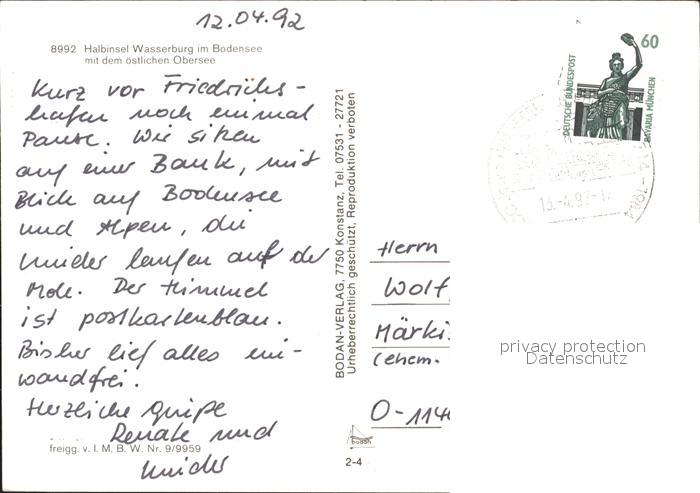 12.04.92
8992 Halbinsel Wasserburg im Bodensee
mit dem östlichen Obersee
Kurz vor Friedrichs-
hafen noch einmal
Pause. Wir sitzen
auf einer Bank, mit
Blick auf Bodensee
und Alpen, die
Kinder laufen auf der
Mole. Der Himmel
ist postkartenblau.
Bisher lief alles ein-
wandfrei.
Herzliche Grüße
Renate und
Kinder
freigg. v. I. M. B. W. Nr. 9/9959
BODAN-VERLAG, 7750 Konstanz, Tel. 07531 - 27721
Urheberrechtlich geschützt, Reproduktion verboten
2-4
60
DEUTSCHE BUNDESPOST
BAVARIA MÜNCHEN
Herrn
Wolf
Märki
(ehem.
O-1140
privacy protection
Datenschutz